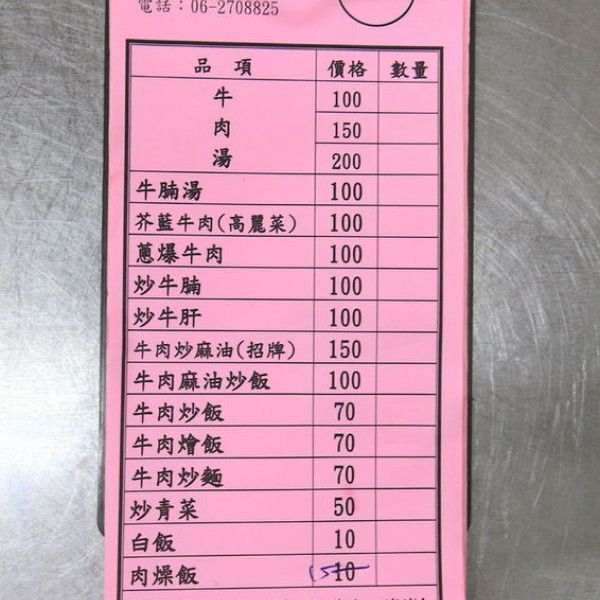 電話：06-2708825
品項 價格 數量
牛 100
肉 150
湯 200
牛腩湯 100
芥藍牛肉(高麗菜) 100
蔥爆牛肉 100
炒牛腩 100
炒牛肝 100
牛肉炒麻油(招牌) 150
牛肉麻油炒飯 100
牛肉炒飯 70
牛肉燴飯 70
牛肉炒麵 70
炒青菜 50
白飯 10
肉燥飯 15 10